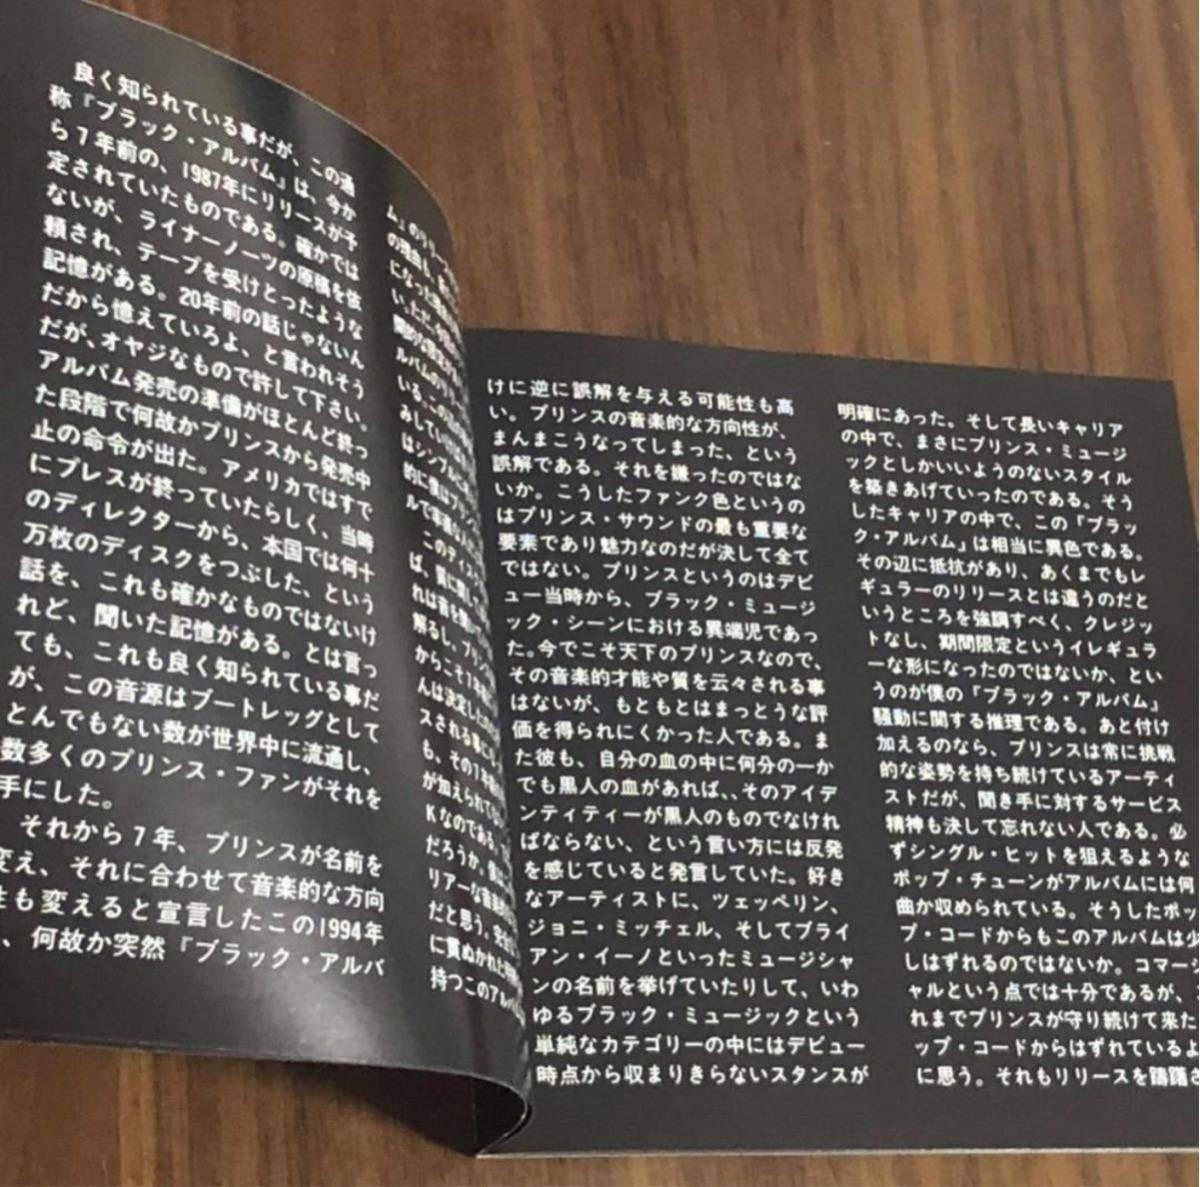 良く知られている事だが、この通
称『ブラック・アルバム』は、今か
ら７年前の、1987年にリリースが予
定されていたものである。確かでは
ないが、ライナーノーツの原稿を依
頼され、テープを受けとったような
記憶がある。20年前の話じゃないん
だから憶えていろよ、と言われそう
だが、オヤジなもので許して下さい。
アルバム発売の準備がほとんど終っ
た段階で何故かプリンスから発売中
止の命令が出た。アメリカではすで
にプレスが終っていたらしく、当時
のディレクターから、本国では何十
万枚のディスクをつぶした、という
話を、これも確かなものではないけ
れど、聞いた記憶がある。とは言っ
ても、これも良く知られている事だ
が、この音源はブートレッグとして
とんでもない数が世界中に流通し、
数多くのプリンス・ファンがそれを
手にした。
それから７年、プリンスが名前を
変え、それに合わせて音楽的な方向
性も変えると宣言したこの1994年
、何故か突然『ブラック・アルバ
ム』のリリー
の理由も、
になった
い。ただ、
アルバムのリリー
いる。この
みしてい
はシンプル
的に僕はプリン
ルで事
このディス
ば、質に
れは音を
解るし、プリン
からこそ７年
んは決定した
スされる事に
も、その７年
が加えられてい
Kなのである。
だろうか。僕
リアーな音楽
だと思う。完全
に貫ぬかれた
持つこのアルバ
けに逆に誤解を与える可能性も高
い。プリンスの音楽的な方向性が、
まんまこうなってしまった、という
誤解である。それを嫌ったのではな
いか。こうしたファンク色というの
はプリンス・サウンドの最も重要な
要素であり魅力なのだが決して全て
ではない。プリンスというのはデビ
ュー当時から、ブラック・ミュージ
ック・シーンにおける異端児であっ
た。今でこそ天下のプリンスなので、
その音楽的才能や質を云々される事
はないが、もともとはまっとうな評
価を得られにくかった人である。ま
た彼も、自分の血の中に何分の一か
でも黒人の血があれば、、そのアイデ
ンティティーが黒人のものでなけれ
ばならない、という言い方には反発
を感じていると発言していた。好き
なアーティストに、ツェッペリン、
ジョニ・ミッチェル、そしてブライ
アン・イーノといったミュージシャ
ンの名前を挙げていたりして、いわ
ゆるブラック・ミュージックという
単純なカテゴリーの中にはデビュー
時点から収まりきらないスタンスが
明確にあった。そして長いキャリア
の中で、まさにプリンス・ミュージ
ックとしかいいようのないスタイル
を築きあげていったのである。そう
したキャリアの中で、この『ブラッ
ク・アルバム』は相当に異色である。
その辺に抵抗があり、あくまでもレ
ギュラーのリリースとは違うのだと
いうところを強調すべく、クレジッ
トなし、期間限定というイレギュラ
ーな形になったのではないか、とい
うのが僕の『ブラック・アルバム』
騒動に関する推理である。あと付け
加えるのなら、プリンスは常に挑戦
的な姿勢を持ち続けているアーティ
ストだが、聞き手に対するサービス
精神も決して忘れない人である。必
ずシングル・ヒットを狙えるような
ポップ・チューンがアルバムには何
曲か収められている。そうしたポッ
プ・コードからもこのアルバムは少
しはずれるのではないか。コマーシ
ャルという点では十分であるが、
れまでプリンスが守り続けて来た
ップ・コードからはずれているよ
に思う。それもリリースを躊躇さ